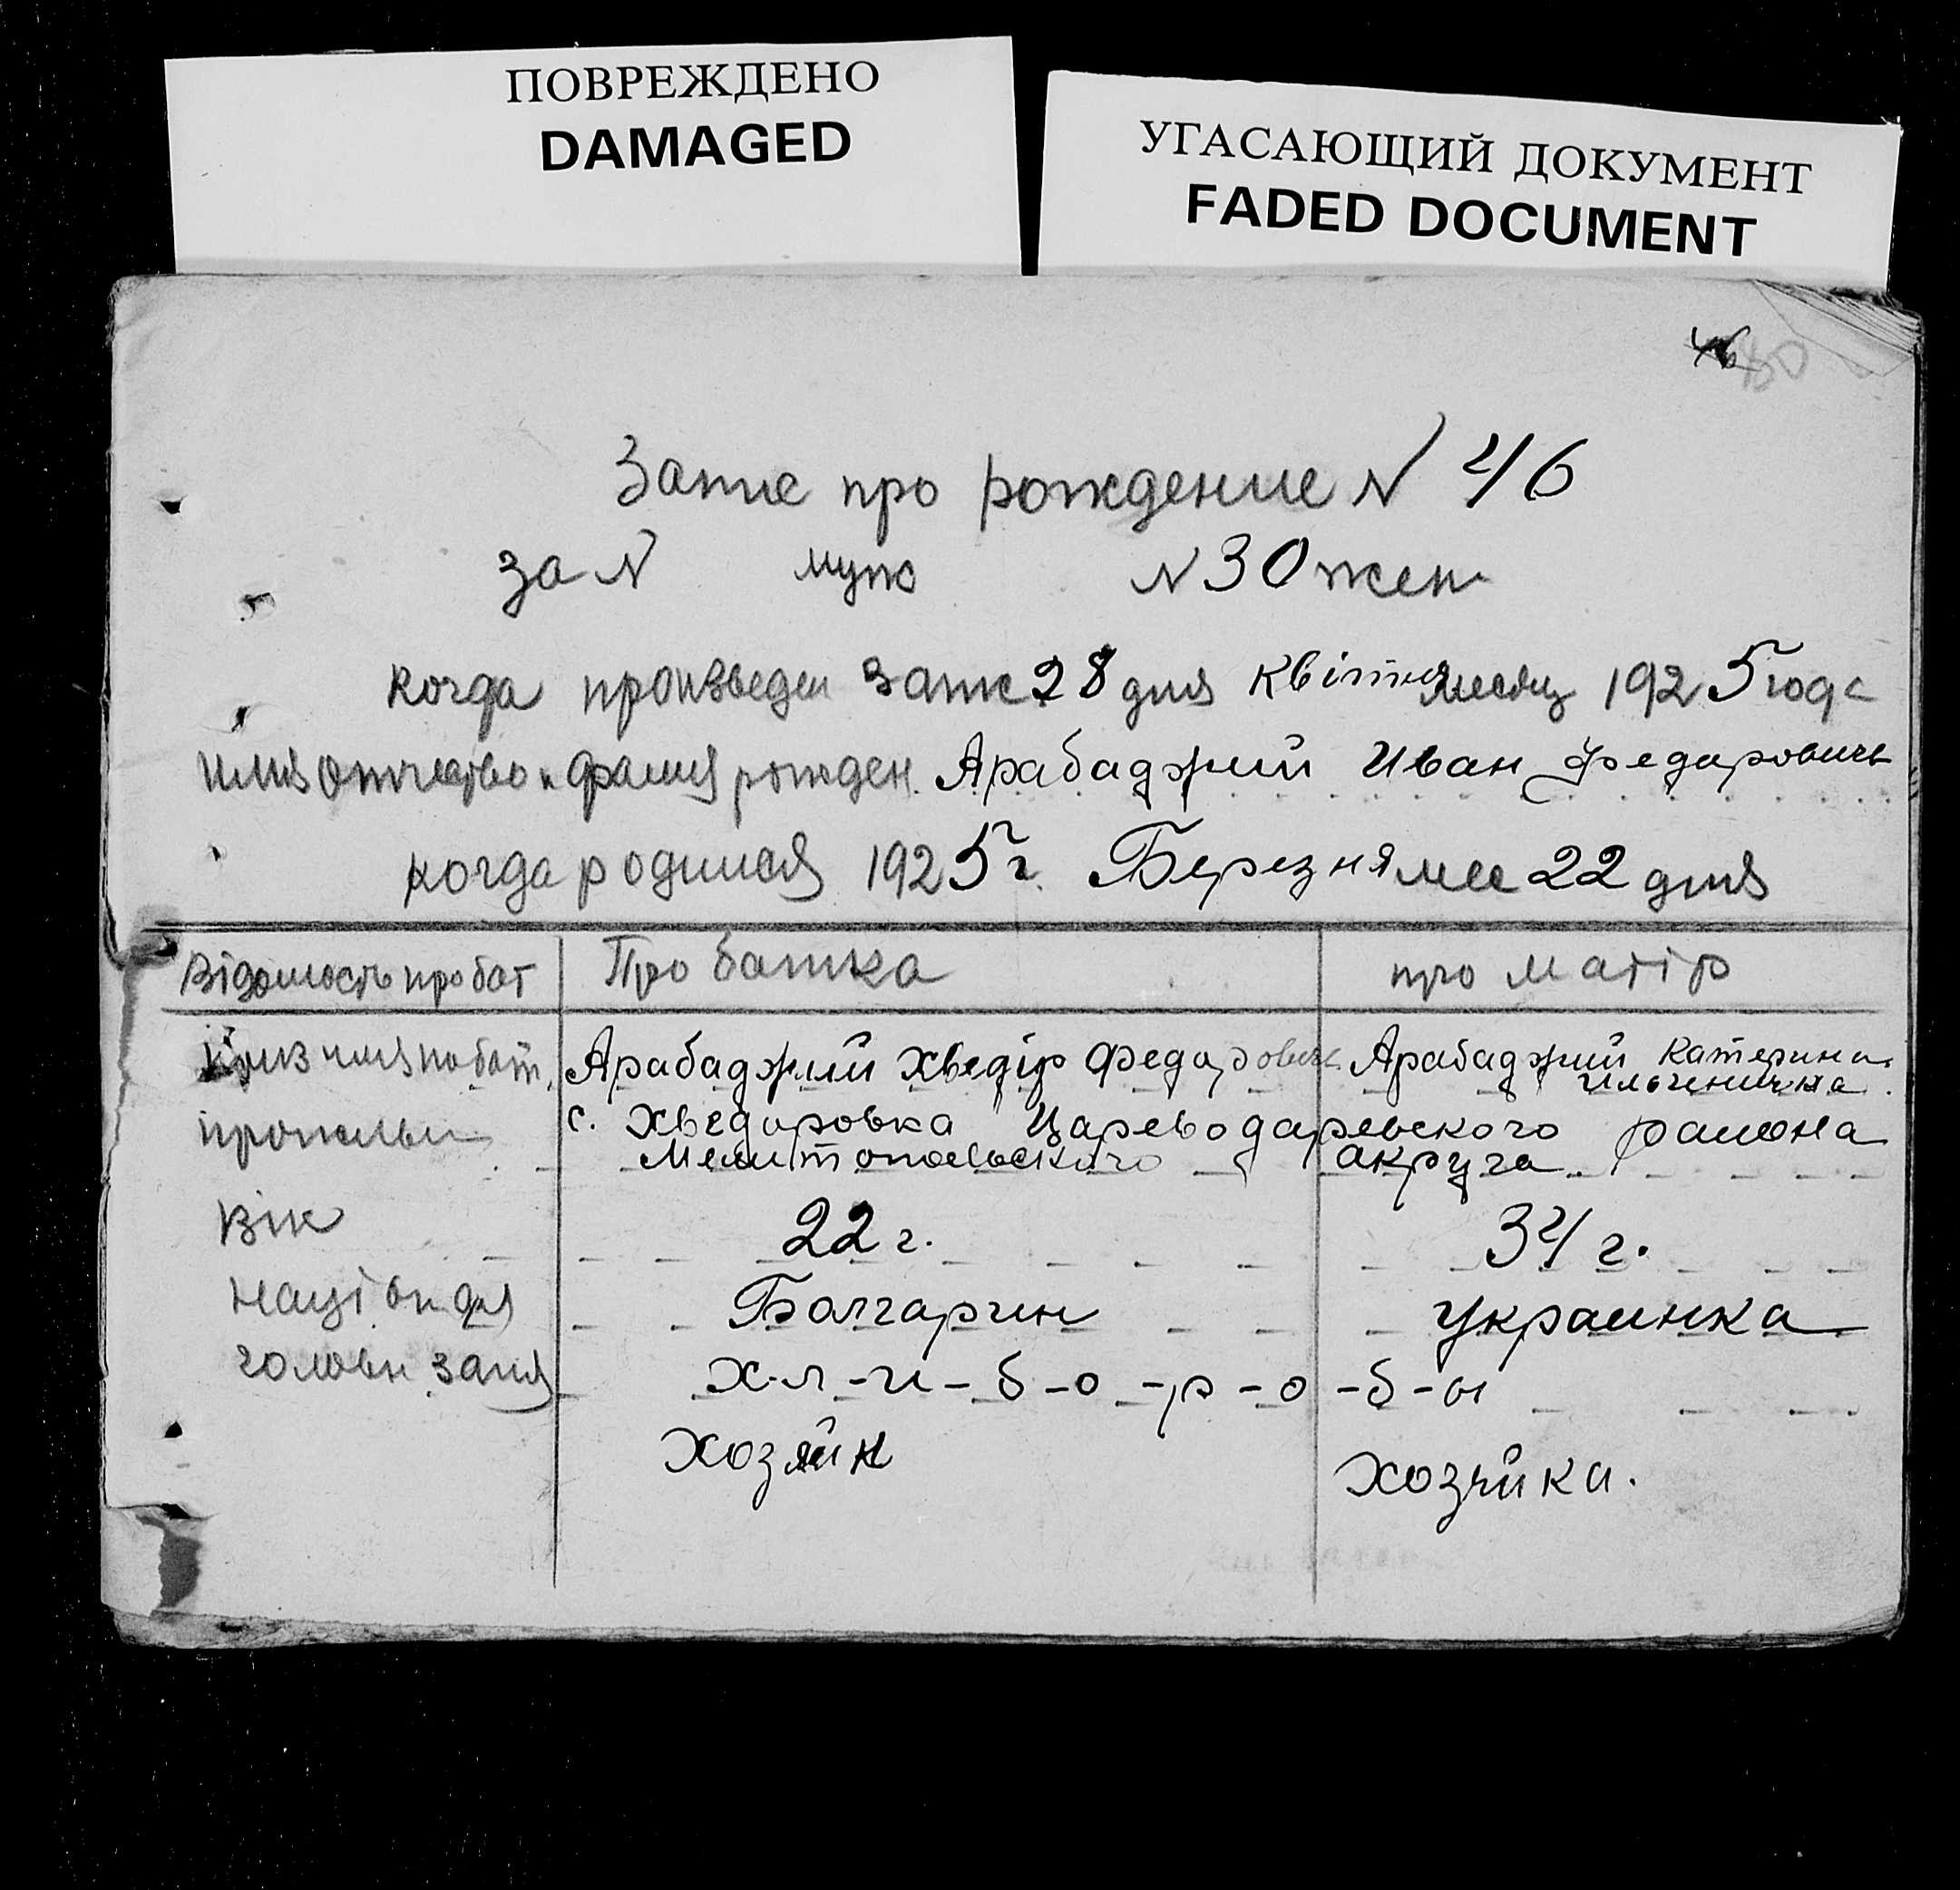 ПОВРЕЖДЕНО
DAMAGED
УГАСАЮЩИЙ ДОКУМЕНТ
FADED DOCUMENT
46 80
Запис про рождение N 46
за N муж N 30 жен
когда произведен запис 28 дня Квітня месяц 1925 года
имя отчество и фамия рожден. Арабаджий Иван Федаровичь
когда родился 1925 г. Березня мес 22 дня
Відомость про бат Про батка про матір
призв имя по бат. Арабаджий Хведір Федарович Арабаджий Катерина
Ильенична
с. Хведоровка Цареводаревского раиона
Мелитопольского акруга
Вік 22 г. 34 г.
Наці Болгарин Украинка
головн. заня х-л-и-б-о-р-о-б-ы
Хозяйн Хозяйка.